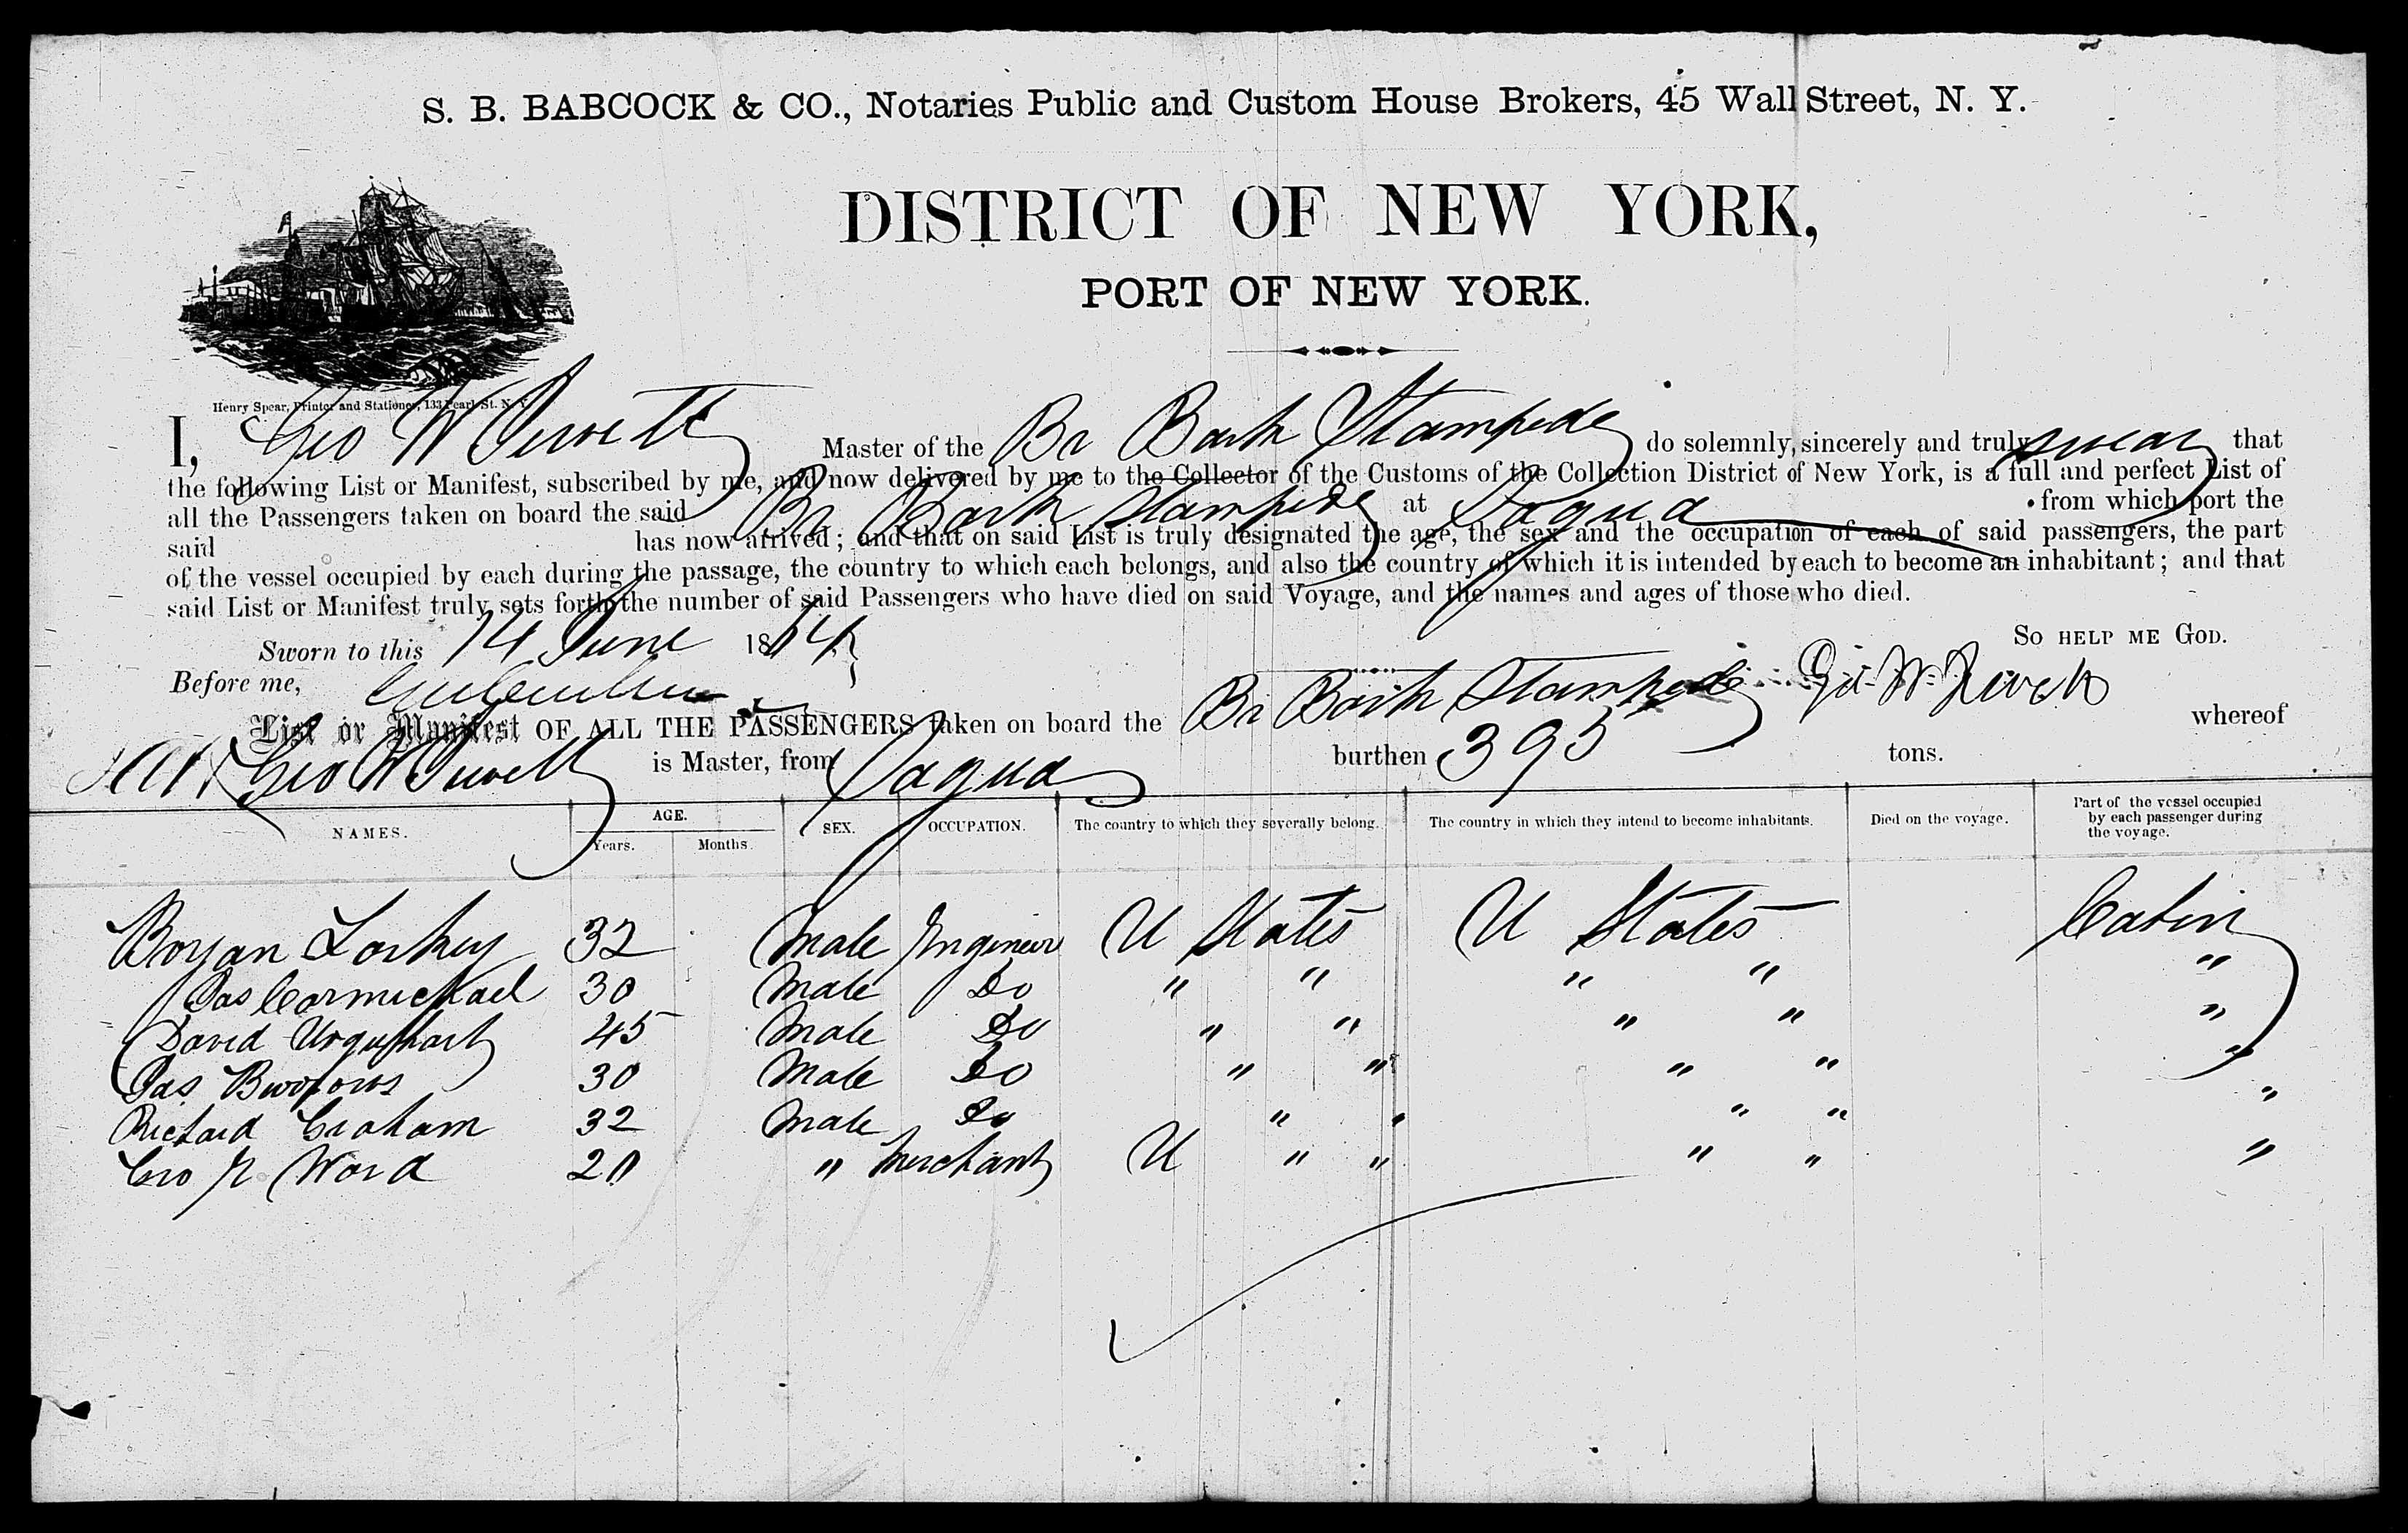 S. B. BABCOCK & CO., Notaries Public and Custom House Brokers, 45 Wall Street, N. Y.
DISTRICT OF NEW YORK,
PORT OF NEW YORK.
Henry Spear, Printer and Stationer, 133 Pearl St. N. Y.
I, Geo W Master of the Br Bark Stampede do solemnly, sincerely and truly swear that
the following List or Manifest, subscribed by me, and now delivered by me to the Collector of the Customs of the Collection District of New York, is a full and perfect List of
all the Passengers taken on board the said Br Bark Stampede at Sagua from which port the
said has now arrived; and that on said List is truly designated the age, the sex and the occupation of each of said passengers, the part
of the vessel occupied by each during the passage, the country to which each belongs, and also the country of which it is intended by each to become an inhabitant; and that
said List or Manifest truly sets forth the number of said Passengers who have died on said Voyage, and the names and ages of those who died.
Sworn to this 14 June 18 So help me God.
Before me, Geo. W.
List or Manifest OF ALL THE PASSENGERS taken on board the Br Bark Stampede whereof
Geo W is Master, from Sagua burthen 395 tons.
NAMES. AGE. Years. Months. SEX. OCCUPATION. The country to which they severally belong. The country in which they intend to become inhabitants. Died on the voyage. Part of the vessel occupied by each passenger during the voyage.
32 Male Engineer U States U States Cabin
Jas Carmichael 30 Male Do " " " " "
David Urquhart 45 Male Do " " " " "
Jas 30 Male Do " " " " "
Richard Graham 32 Male Do " " " " "
Geo Ward 20 " Merchant U " " " " "